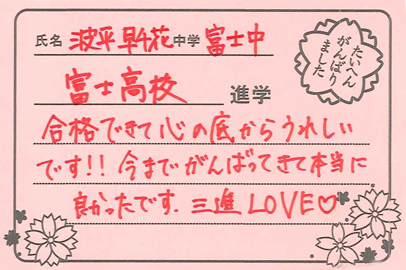 氏名 波平早千花 中学 富士中
富士高校 進学
たいへん
がんばり
ました
合格できて心の底からうれしい
です!! 今までがんばってきて本当に
良かったです. 三進 LOVE♡